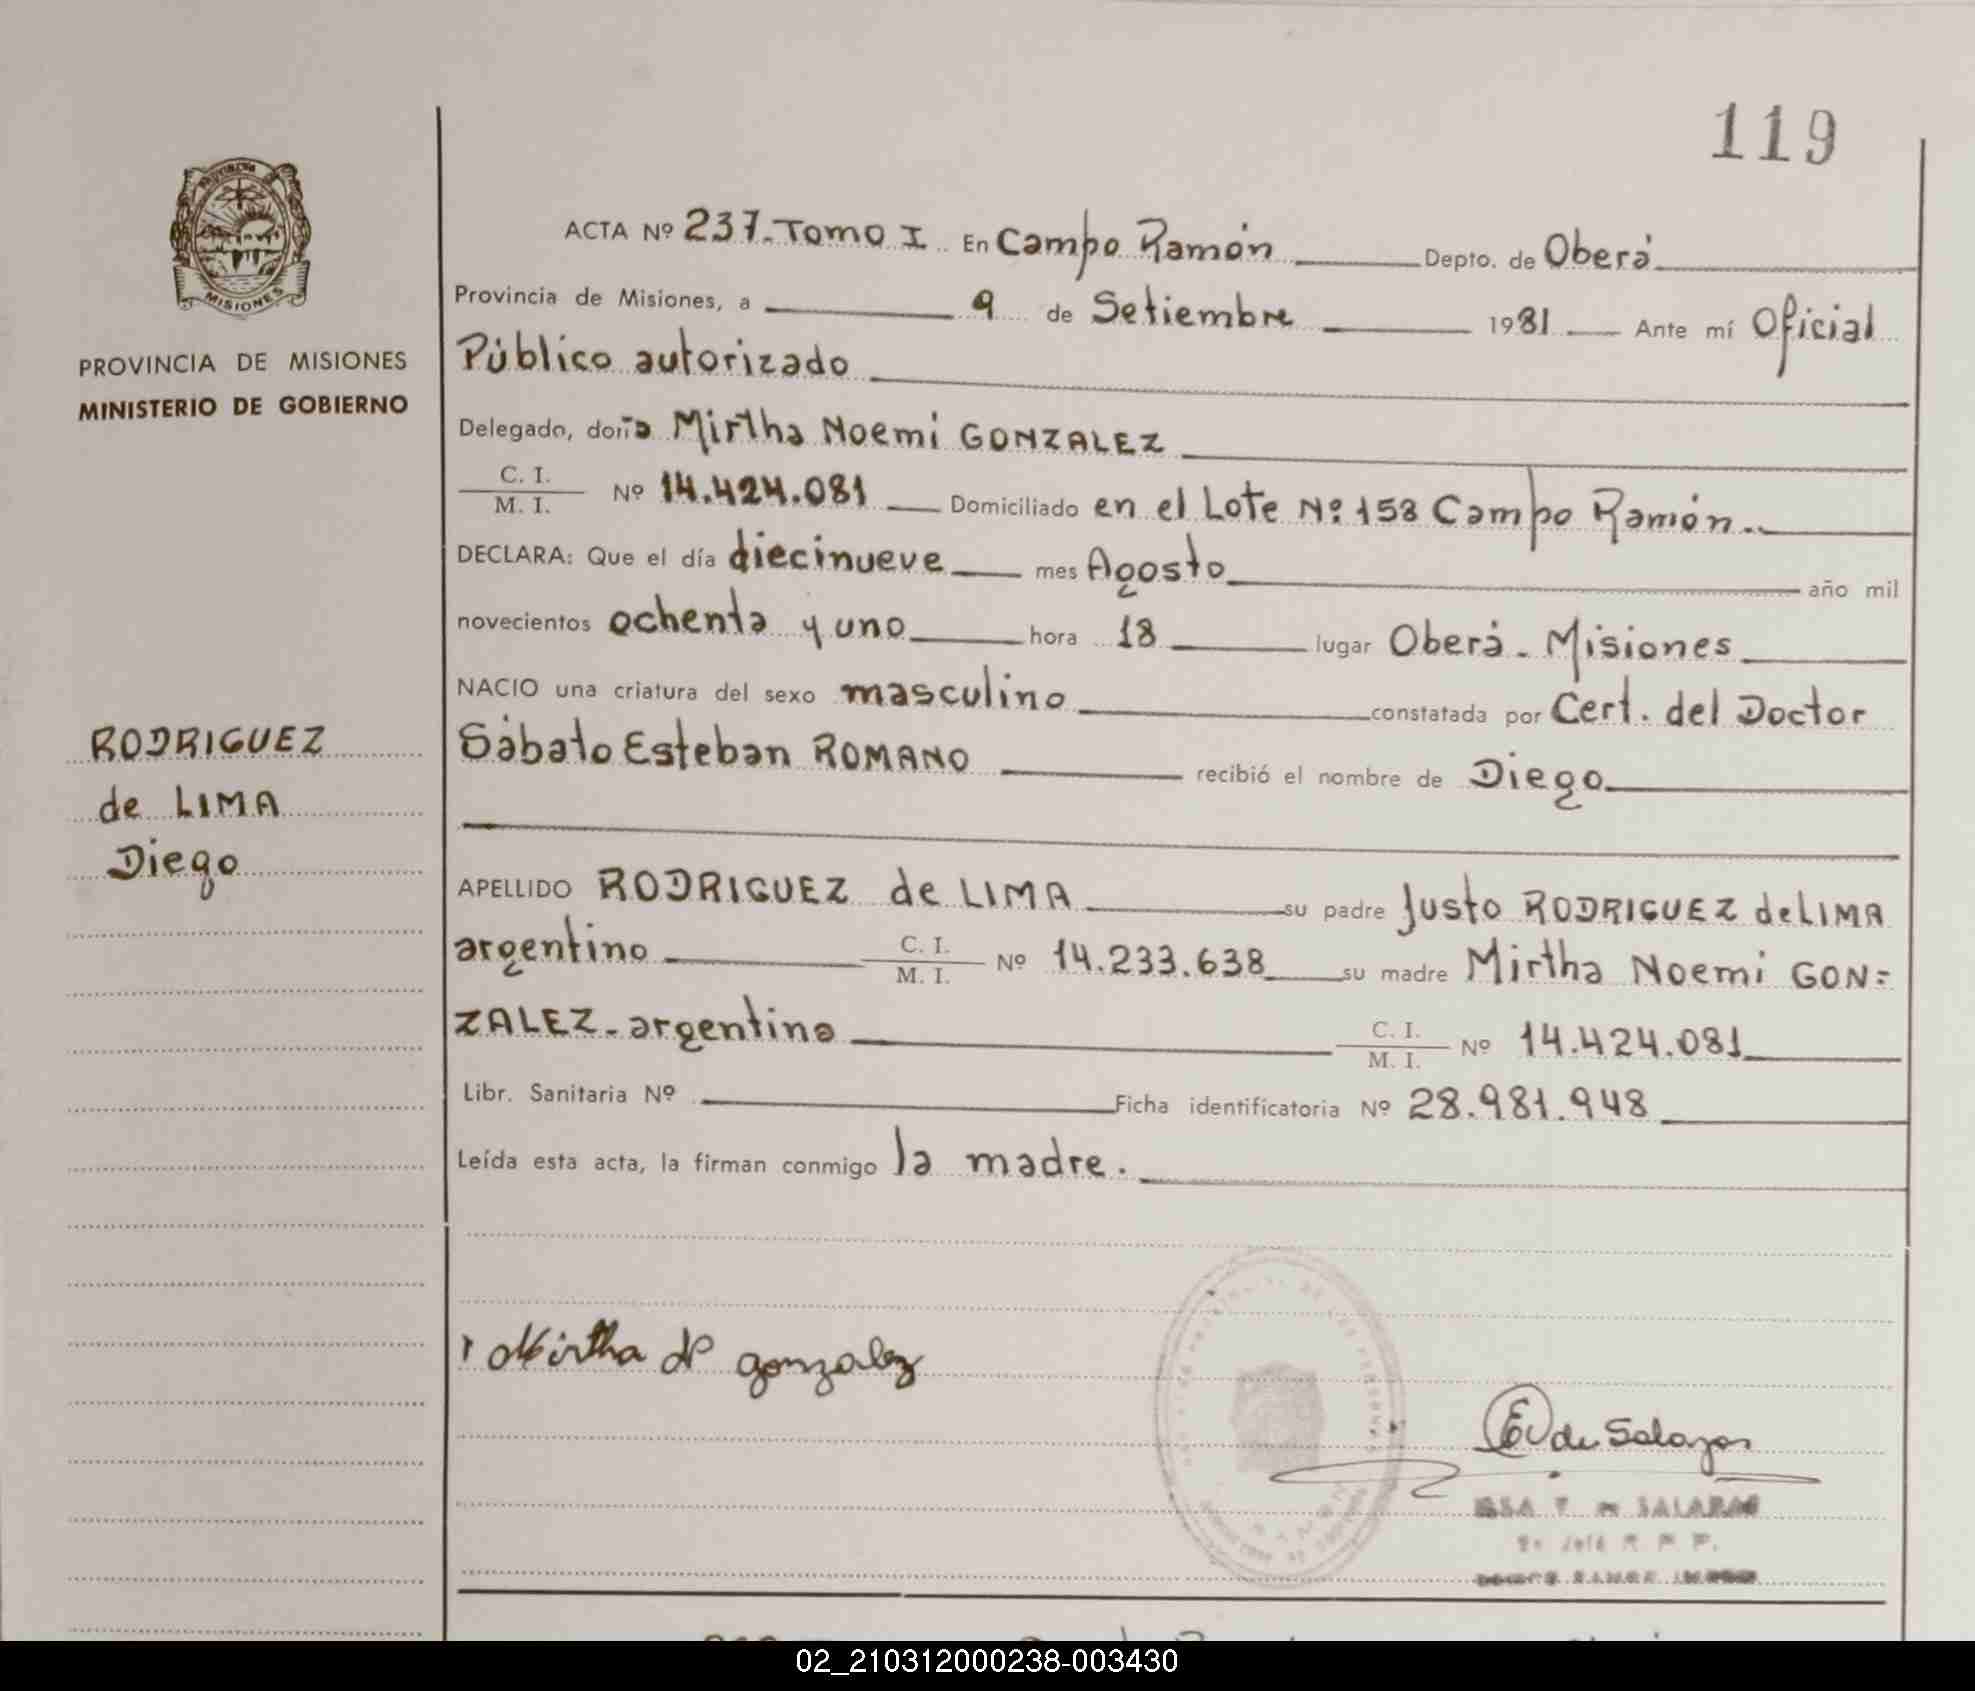 119
PROVINCIA
MISIONES
PROVINCIA DE MISIONES
MINISTERIO DE GOBIERNO
RODRIGUEZ
de LIMA
Diego
ACTA Nº 237. Tomo I En Campo Ramón Depto. de Oberá
Provincia de Misiones, a 9 de Setiembre 1981 Ante mí Oficial
Público autorizado
Delegado, doña Mirtha Noemi GONZALEZ
C. I.
M. I. Nº 14.424.081 Domiciliado en el Lote Nº 158 Campo Ramón.
DECLARA: Que el día diecinueve mes Agosto año mil
novecientos ochenta y uno hora 18 lugar Oberá - Misiones
NACIO una criatura del sexo masculino constatada por Cert. del Doctor
Sábato Esteban ROMANO recibió el nombre de Diego
APELLIDO RODRIGUEZ de LIMA su padre Justo RODRIGUEZ de LIMA
argentino C. I.
M. I. Nº 14.233.638 su madre Mirtha Noemi GON=
ZALEZ - argentina C. I.
M. I. Nº 14.424.081
Libr. Sanitaria Nº Ficha identificatoria Nº 28.981.948
Leída esta acta, la firman conmigo la madre.
Mirtha N gonzalez
de Salazar
SALAZAR
02_210312000238-003430